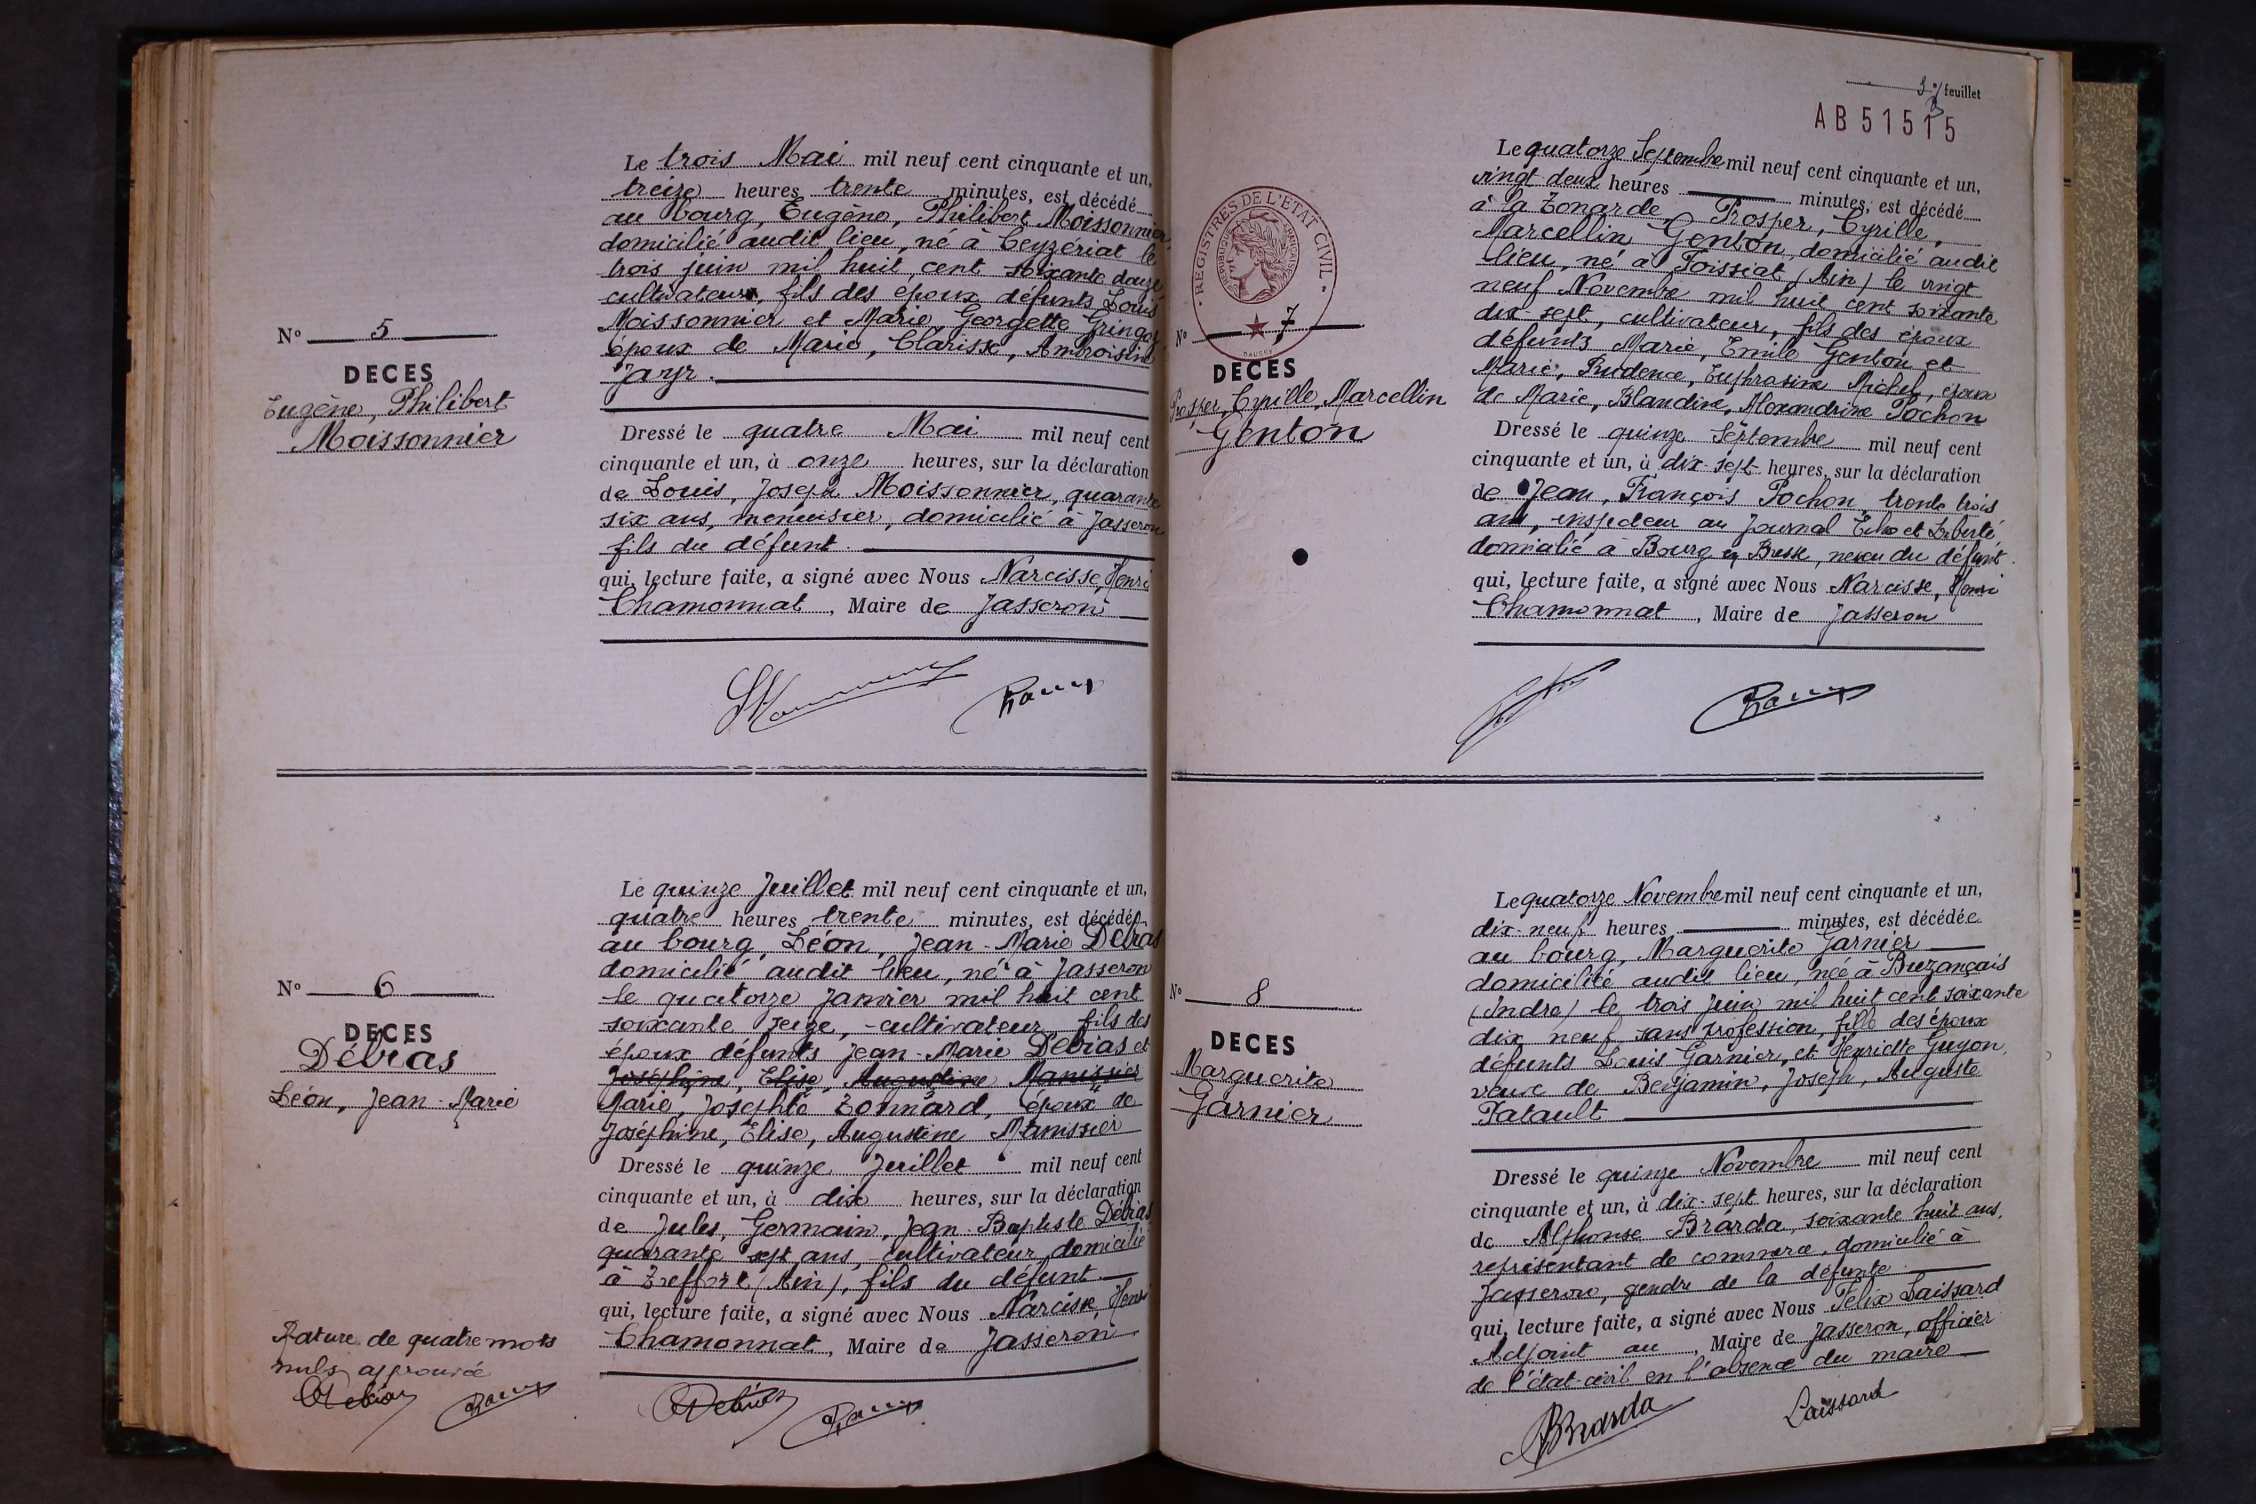 Le trois Mai mil neuf cent cinquante et un,
treize heures trente minutes, est décédé
au bourg, Eugène, Philibert Moissonnier,
domicilié audit lieu, né à Ceyzériat le
trois juin mil huit cent soixante douze
cultivateur, fils des époux défunts Louis
Moissonnier et Marie, Georgette
époux de Marie, Clarisse, Ambroisine
Jayr.
N° 5
DECES
Eugène, Philibert
Moissonnier
Dressé le quatre Mai mil neuf cent
cinquante et un, à onze heures, sur la déclaration
de Louis, Joseph Moissonnier, quarante
six ans, menuisier, domicilié à Jasseron
fils du défunt.
qui, lecture faite, a signé avec Nous Narcisse, Henri
Chamonnat, Maire de Jasseron
Le quinze Juillet mil neuf cent cinquante et un,
quatre heures trente minutes, est décédé
au bourg, Léon, Jean-Marie Débias
domicilié audit lieu, né à Jasseron
le quatorze Janvier mil huit cent
soixante seize, cultivateur, fils des
époux défunts Jean-Marie Débias et
Joséphine, Elise, Augustine Manissier
Marie, Josephte Bonnard, époux de
Joséphine, Elise, Augustine Manissier
N° 6
DECES
Débias
Léon, Jean-Marie
Dressé le quinze Juillet mil neuf cent
cinquante et un, à dix heures, sur la déclaration
de Jules, Germain, Jean-Baptiste Débias
quarante sept ans, cultivateur, domicilié
à Treffort (Ain), fils du défunt.
qui, lecture faite, a signé avec Nous Narcisse, Henri
Chamonnat, Maire de Jasseron
Rature de quatre mots
nuls approuvée
Debias
Debias
feuillet
AB 51515
REGISTRES DE L'ETAT CIVIL
REPUBLIQUE FRANÇAISE
Le quatorze Septembre mil neuf cent cinquante et un,
vingt deux heures minutes, est décédé
à la Prosper, Cyrille,
Marcellin Genton, domicilié audit
lieu, né à Foissiat (Ain) le vingt
neuf Novembre mil huit cent soixante
dix-sept, cultivateur, fils des époux
défunts Marie, Emile Genton et
Marie, Prudence, Euphrasine Michel, époux
de Marie, Blandine, Alexandrine Pochon
N° 7
DECES
Prosper, Cyrille, Marcellin
Genton
Dressé le quinze Septembre mil neuf cent
cinquante et un, à dix-sept heures, sur la déclaration
de Jean, François Pochon, trente trois
ans, inspecteur au Journal Echo et Liberté,
domicilié à Bourg en Bresse, neveu du défunt.
qui, lecture faite, a signé avec Nous Narcisse, Henri
Chamonnat, Maire de Jasseron
Le quatorze Novembre mil neuf cent cinquante et un,
dix-neuf heures minutes, est décédée
au bourg, Marguerite Garnier
domiciliée audit lieu, née à Buzançais
(Indre) le trois Juin mil huit cent soixante
dix neuf, sans profession, fille des époux
défunts Louis Garnier, et Henriette Guyon,
veuve de Benjamin, Joseph, Auguste
Patault
N° 8
DECES
Marguerite
Garnier
Dressé le quinze Novembre mil neuf cent
cinquante et un, à dix-sept heures, sur la déclaration
de Alphonse Brarda, soixante huit ans,
représentant de commerce, domicilié à
Jasseron, gendre de la défunte
qui, lecture faite, a signé avec Nous Félix Laissard
Adjoint au, Maire de Jasseron, officier
de l'état-civil en l'absence du maire
Brarda
Laissard